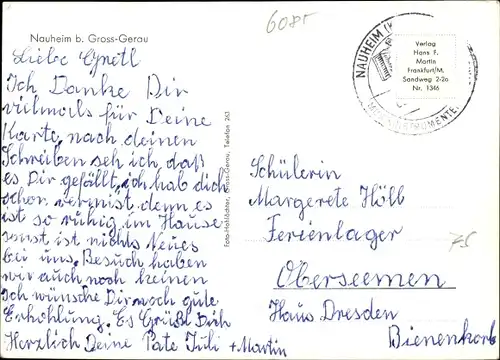 6085
Nauheim b. Gross-Gerau
Liebe
Ich Danke Dir
vilmals für Deine
Karte, nach deinen
Schreiben seh ich, daß
es Dir gefällt, ich hab dich
schon vermist, denn es
ist so ruhig im Hause
sonst ist nichts Neues
bei uns. Besuch haben
wir auch noch keinen
Ich wünsche Dir noch gute
Erhohlung. Es Grüßt Dich
Herzlich Deine Pate Juli + Martin
Foto-Hohlbohter, Gross-Gerau, Telefon 263
NAUHEIM (K
MUSIKINSTRUMENTE
Verlag
Hans F.
Martin
Frankfurt/M.
Sandweg 2-2a
Nr. 1346
Schülerin
Margerete Höll
Ferienlager
Oberseemen
Haus Dresden
Bienenkorb
75